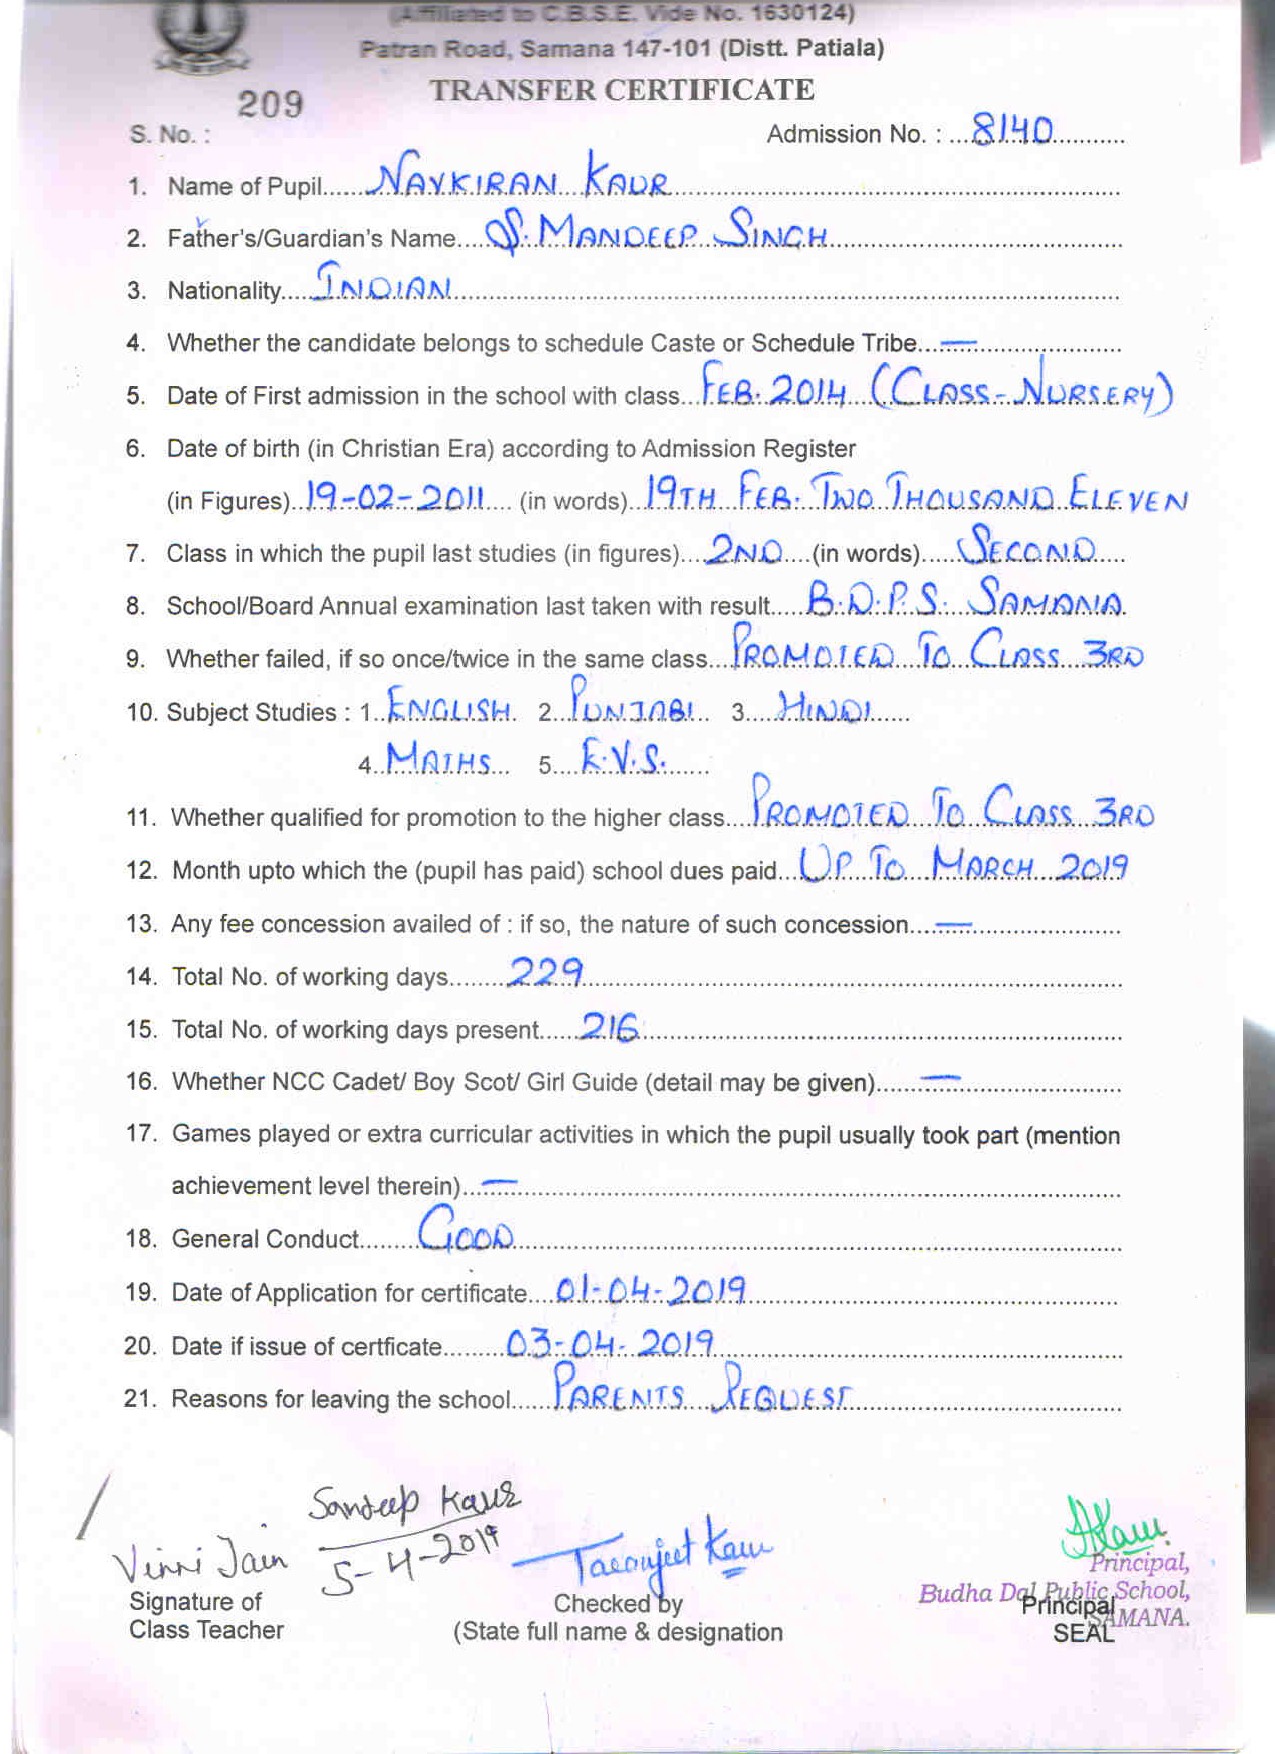 (Affiliated to C.B.S.E. Vide No. 1630124)
Patran Road, Samana 147-101 (Distt. Patiala)
TRANSFER CERTIFICATE
209
S. No. : Admission No. : ...8140...
1. Name of Pupil...NAVKIRAN KAUR...
2. Father's/Guardian's Name...S. MANDEEP SINGH...
3. Nationality...INDIAN...
4. Whether the candidate belongs to schedule Caste or Schedule Tribe...—...
5. Date of First admission in the school with class...FEB. 2014 (CLASS-NURSERY)
6. Date of birth (in Christian Era) according to Admission Register
(in Figures)..19-02-2011.... (in words)..19TH FEB. TWO THOUSAND ELEVEN
7. Class in which the pupil last studies (in figures)....2ND....(in words).....SECOND.....
8. School/Board Annual examination last taken with result.....B.D.P.S. SAMANA.
9. Whether failed, if so once/twice in the same class...PROMOTED TO CLASS 3RD
10. Subject Studies : 1..ENGLISH. 2..PUNJABI.. 3....HINDI......
4..MATHS... 5....E.V.S.......
11. Whether qualified for promotion to the higher class....PROMOTED TO CLASS 3RD
12. Month upto which the (pupil has paid) school dues paid...UP TO MARCH 2019
13. Any fee concession availed of : if so, the nature of such concession...—...
14. Total No. of working days........229...
15. Total No. of working days present......216...
16. Whether NCC Cadet/ Boy Scot/ Girl Guide (detail may be given).......—...
17. Games played or extra curricular activities in which the pupil usually took part (mention
achievement level therein)...—...
18. General Conduct........GOOD...
19. Date of Application for certificate....01-04-2019...
20. Date if issue of certficate.........03-04-2019...
21. Reasons for leaving the school......PARENTS REQUEST...
Sandeep Kaur
5-4-2019
Vinni Jain
Taranjeet Kaur
Signature of
Class Teacher
Checked by
(State full name & designation
Principal,
Budha Dal Public School,
SAMANA.
Principal
SEAL